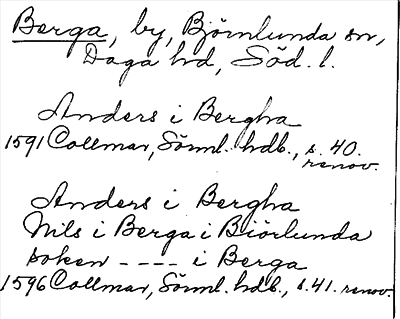 Berga, by, Björnlunda sn,
Daga hd, Söd. l.
Anders i Bergha
1591 Collmar, Sörml. hdb., s. 40.
renov.
Anders i Bergha
Nils i Berga i Biörlunda
soken ---- i Berga
1596 Collmar, Sörml. hdb., s. 41. renov.